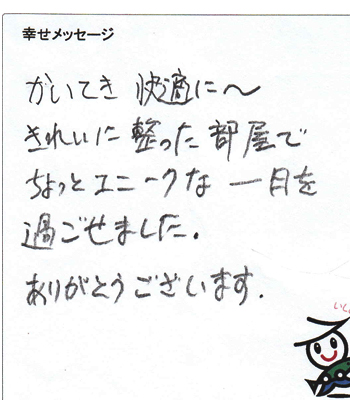 幸せメッセージ
かいてき 快適に〜
きれいに 整った 部屋で
ちょっとユニークな 一日を
過ごせました。
ありがとうございます.